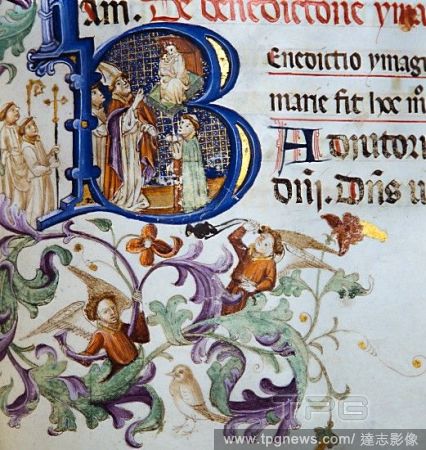 am. De benedictione ymag
B
Enedictio ymagi
marie fit hoc m
Adiutori
dm̄. Dn̄s u
TPG
www.tpgnews.com/ 達志影像